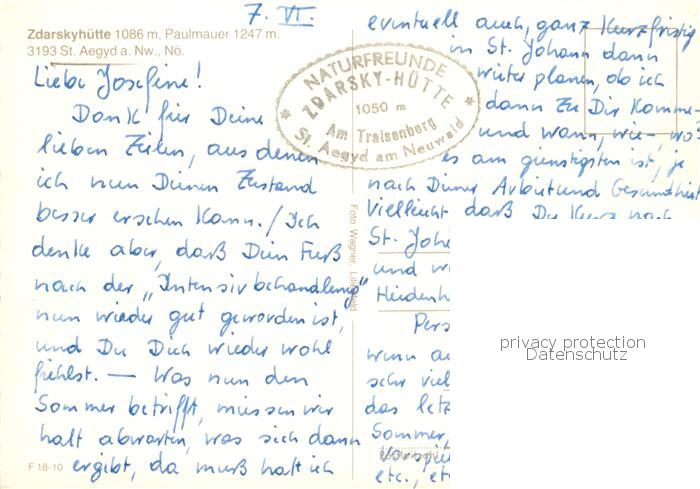 7. VI.
Zdarskyhütte 1086 m, Paulmauer 1247 m.
3193 St. Aegyd a. Nw., Nö.
Liebe Josefine!
Dank für Deine
lieben Zeilen, aus denen
ich nun Deinen Zustand
besser ersehen kann. / Ich
denke aber, daß Dein Fuß
nach der „Intensivbehandlung"
nun wieder gut geworden ist,
und Du Dich wieder wohl
fühlst. — Was nun den
Sommer betrifft, müssen wir
halt abwarten, was sich dann
ergibt, da muß halt ich
F 18-10
NATURFREUNDE
ZDARSKY-HÜTTE
1050 m
Am Traisenberg
St. Aegyd am Neuwald
Foto Wagner, Lilienfeld
eventuell auch, ganz kurzfristig
in St. Johann dann
weiter planen, ob ich
dann zu Dir komme
und wann, wie, wo
es am günstigsten ist, je
nach Deiner Arbeit und Gesundheit
Vielleicht daß Du kurz nach
St. Joh
und w
Heidenh
Pers
wenn au
sehr viel
das letz
Sommer,
etc., et
privacy protection
Datenschutz